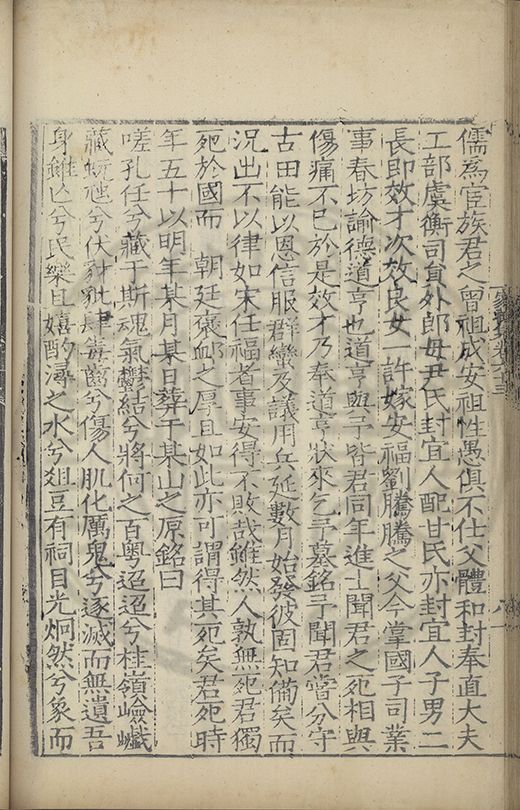 儒爲宦族君之曾祖成安祖性愚俱不仕父體和封奉直大夫
工部虞衡司員外郎母尹氏封宜人配甘氏亦封宜人子男二
長即效才次效良女一許嫁安福劉騰騰之父今掌國子司業
事春坊諭德道亨也道亨與予皆君同年進士聞君之死相與
傷痛不已於是效才乃奉道亨狀來乞予墓銘予聞君嘗分守
古田能以恩信服群蠻及議用兵延數月始發彼固知備矣而
況出不以律如宋任福者事安得不敗哉雖然人孰無死君獨
死於國而 朝廷褒卹之厚且如此亦可謂得其死矣君死時
年五十以明年某月某日葬于某山之原銘曰
嗟孔任兮藏于斯魂氣鬱結兮將何之百粵迢迢兮桂嶺巇
藏蚖虺兮伏豺豼肆毒齒兮傷人肌化厲鬼兮逐滅而無遺吾
身雖亾兮民樂且嬉酌潯之水兮俎豆有祠目光炯然兮象而